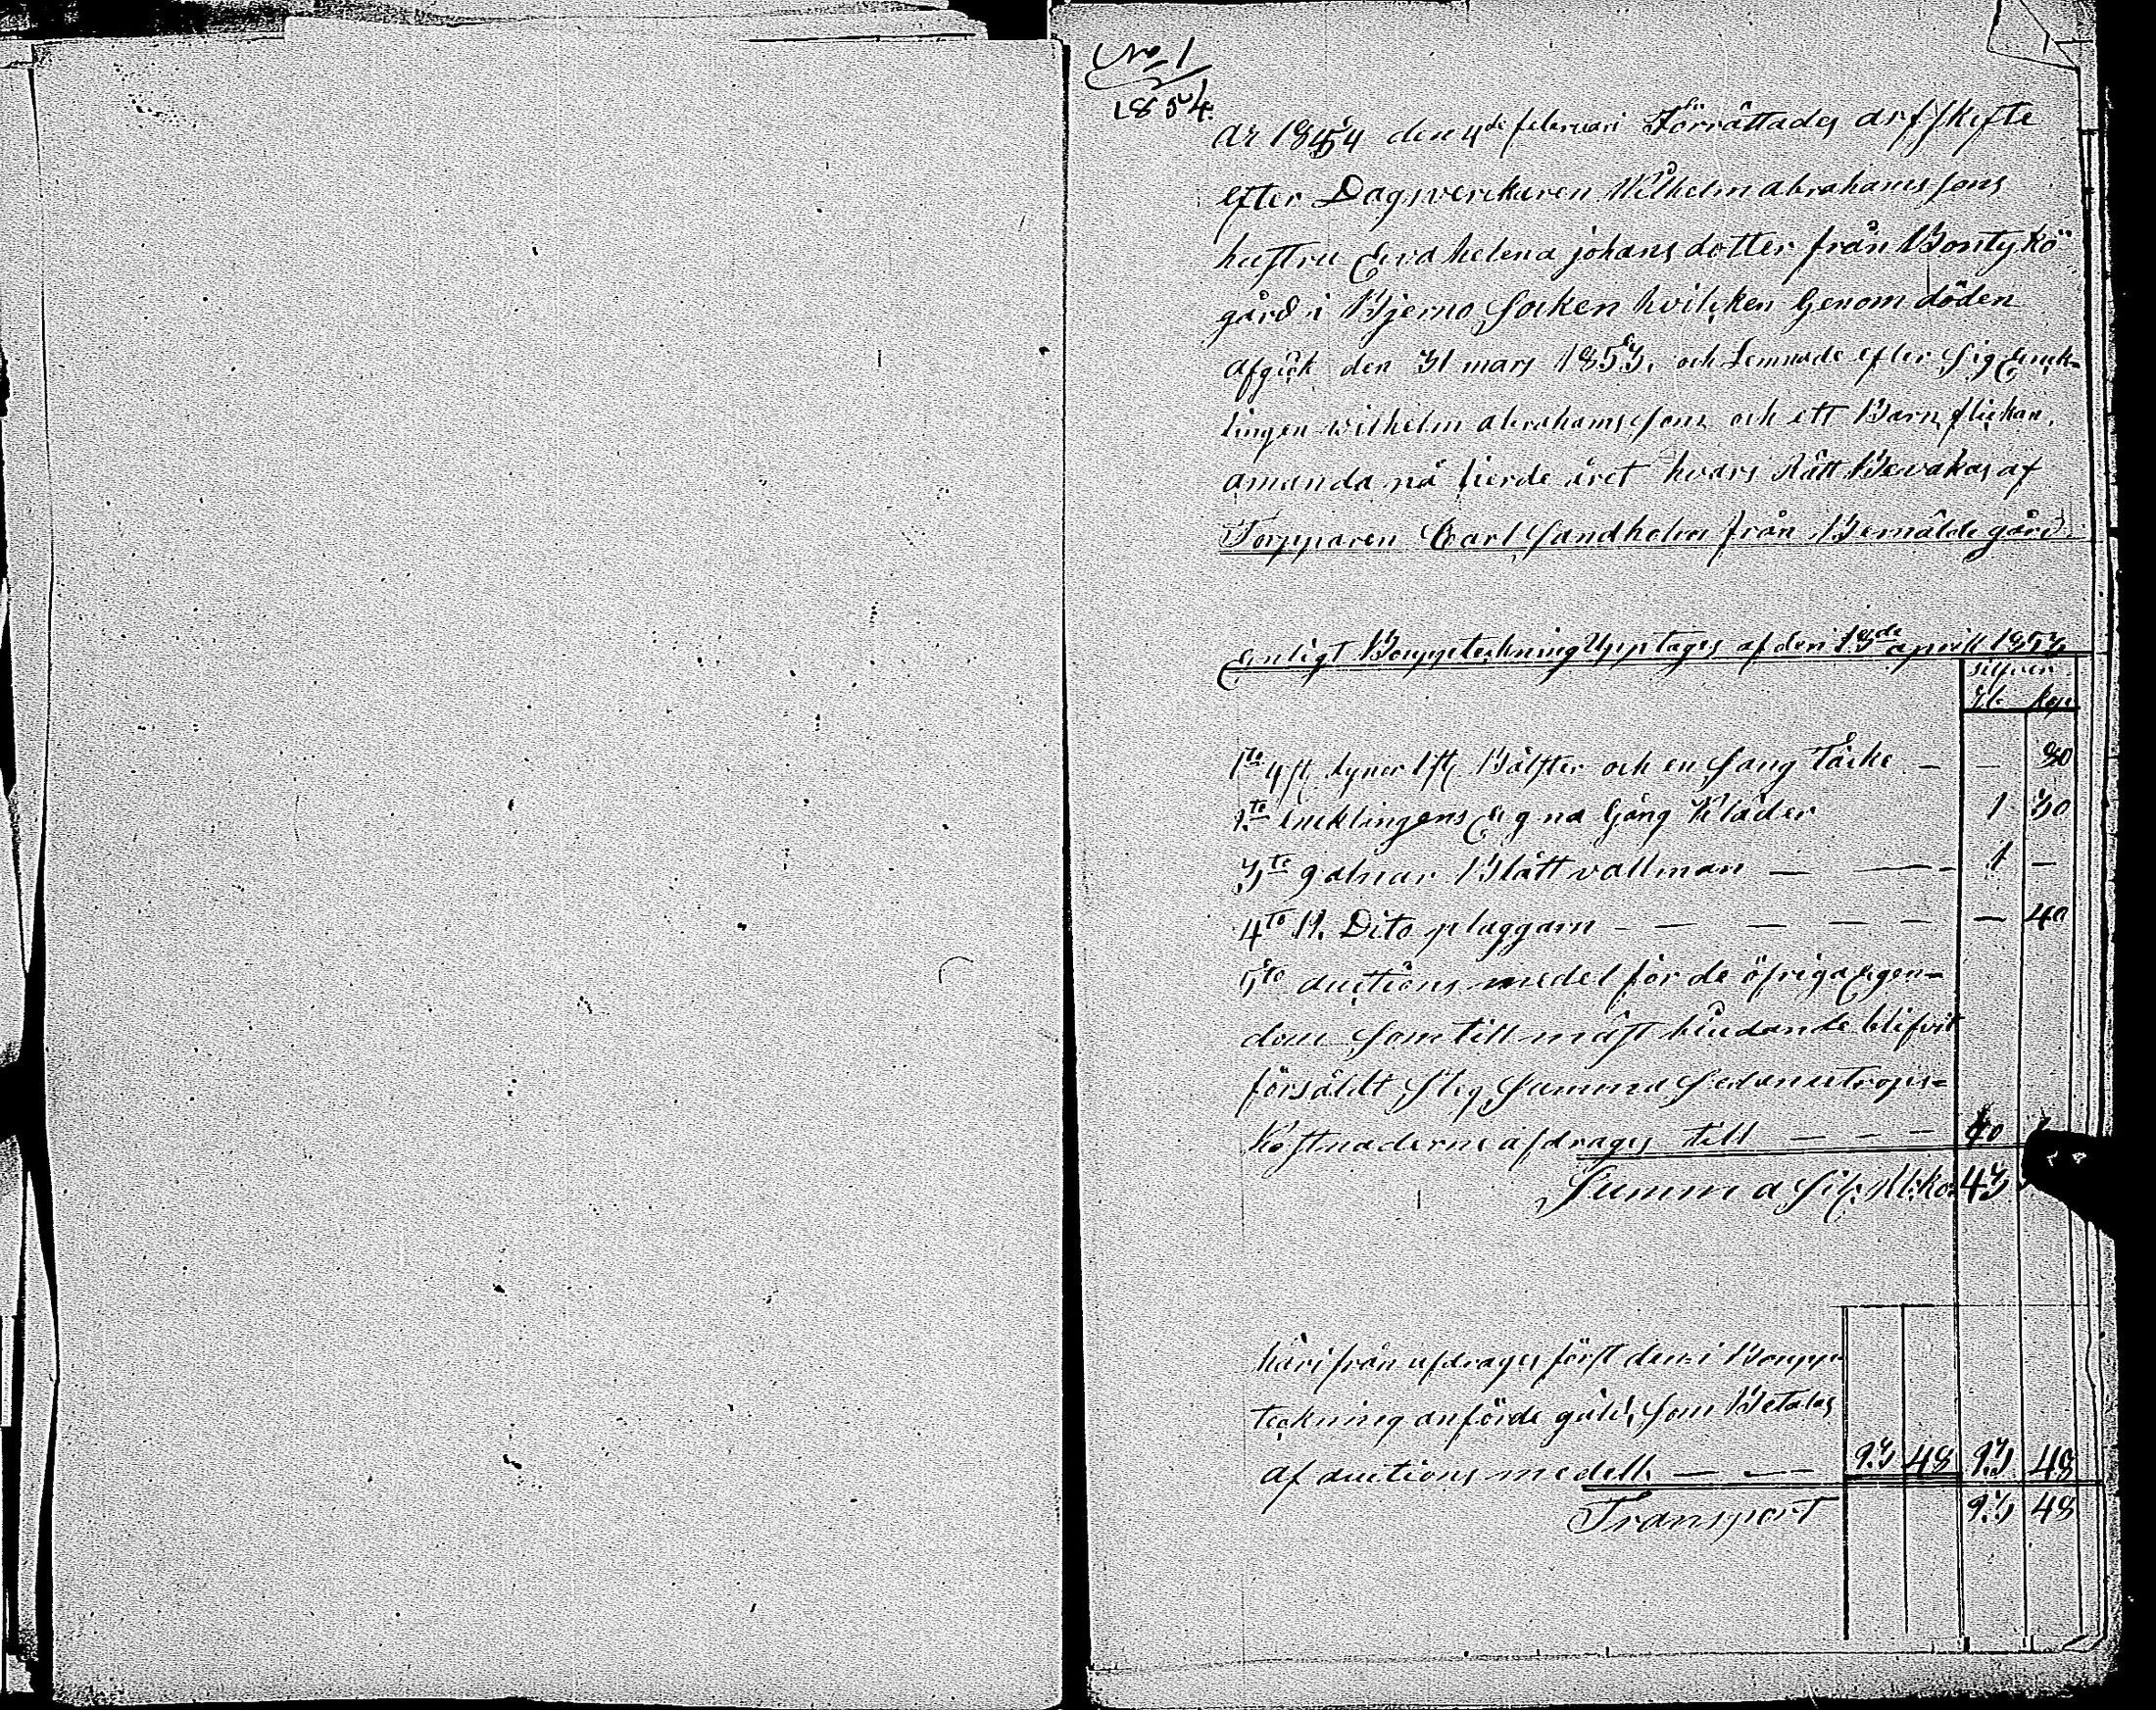 No 1
1854.
År 1854 den 4de februari Förrättades arfskifte
efter Dagsverckaren Wilhelm abrahamssons
hustru Eva helena johans dotter från Bontykö
gård i Bjerno Socken hvilcken Genom döden
afgick den 31 mars 1853. och Lemnade efter sig Enck-
lingen wilhelm abrahamsson och ett Barn flickan
amanda på fierde året hvars Rätt Bevakas af
Torpparen Carl Sandholm från Bemälde gård
Enligt Bouppteckning Upptages af den 13de aprill 1853
silfver
Rb kop
1to 4 st dynor 1 st Bålster och en Säng Täcke - - 80
2to Encklingens Egna Gång Kläder 1 30
3to 9 alnar Blått vallman — — 1 —
4to 11. Dito plaggarn - — — — — — 40
5to auctions medel för de öfriga Egen-
dom Som till mäst biudande blifvit
försåldt Steg Summa Sedan utrops=
kostnaderne afdrages till — — — 40
Summa Silf. Rb. ko. 43
härifrån afdrages först den i Boupp
teckning anförde gäld, Som Betalas
af auctions medell — — 23 48 23 48
Transport 23 48